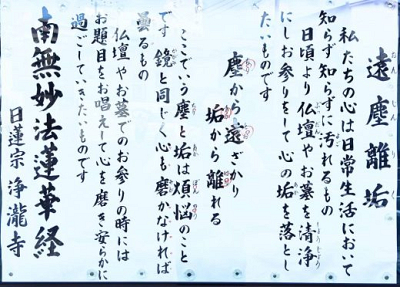 遠塵離垢
おんじんりく
私たちの心は日常生活において
知らず知らずに汚れるもの
日頃より仏壇やお墓を清浄
にしお参りをして心の垢を落とし
たいものです
塵から遠ざかり
垢から離れる
ここでいう塵と垢は煩悩のこと
です 鏡と同じく心も磨かなければ
曇るもの
仏壇やお墓でのお参りの時には
お題目をお唱えして心を磨き安らかに
過ごしていきたいものです
南無妙法蓮華経
日蓮宗 浄瀧寺